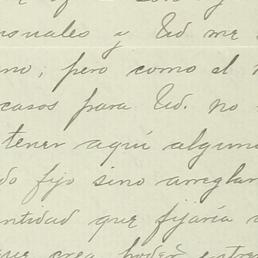 sonales y Ud me
no, pero como el
casos para Ud. no
tener aquí alguno
do fijo sino arreglar
ntidad que fijaría
que crea poder entre